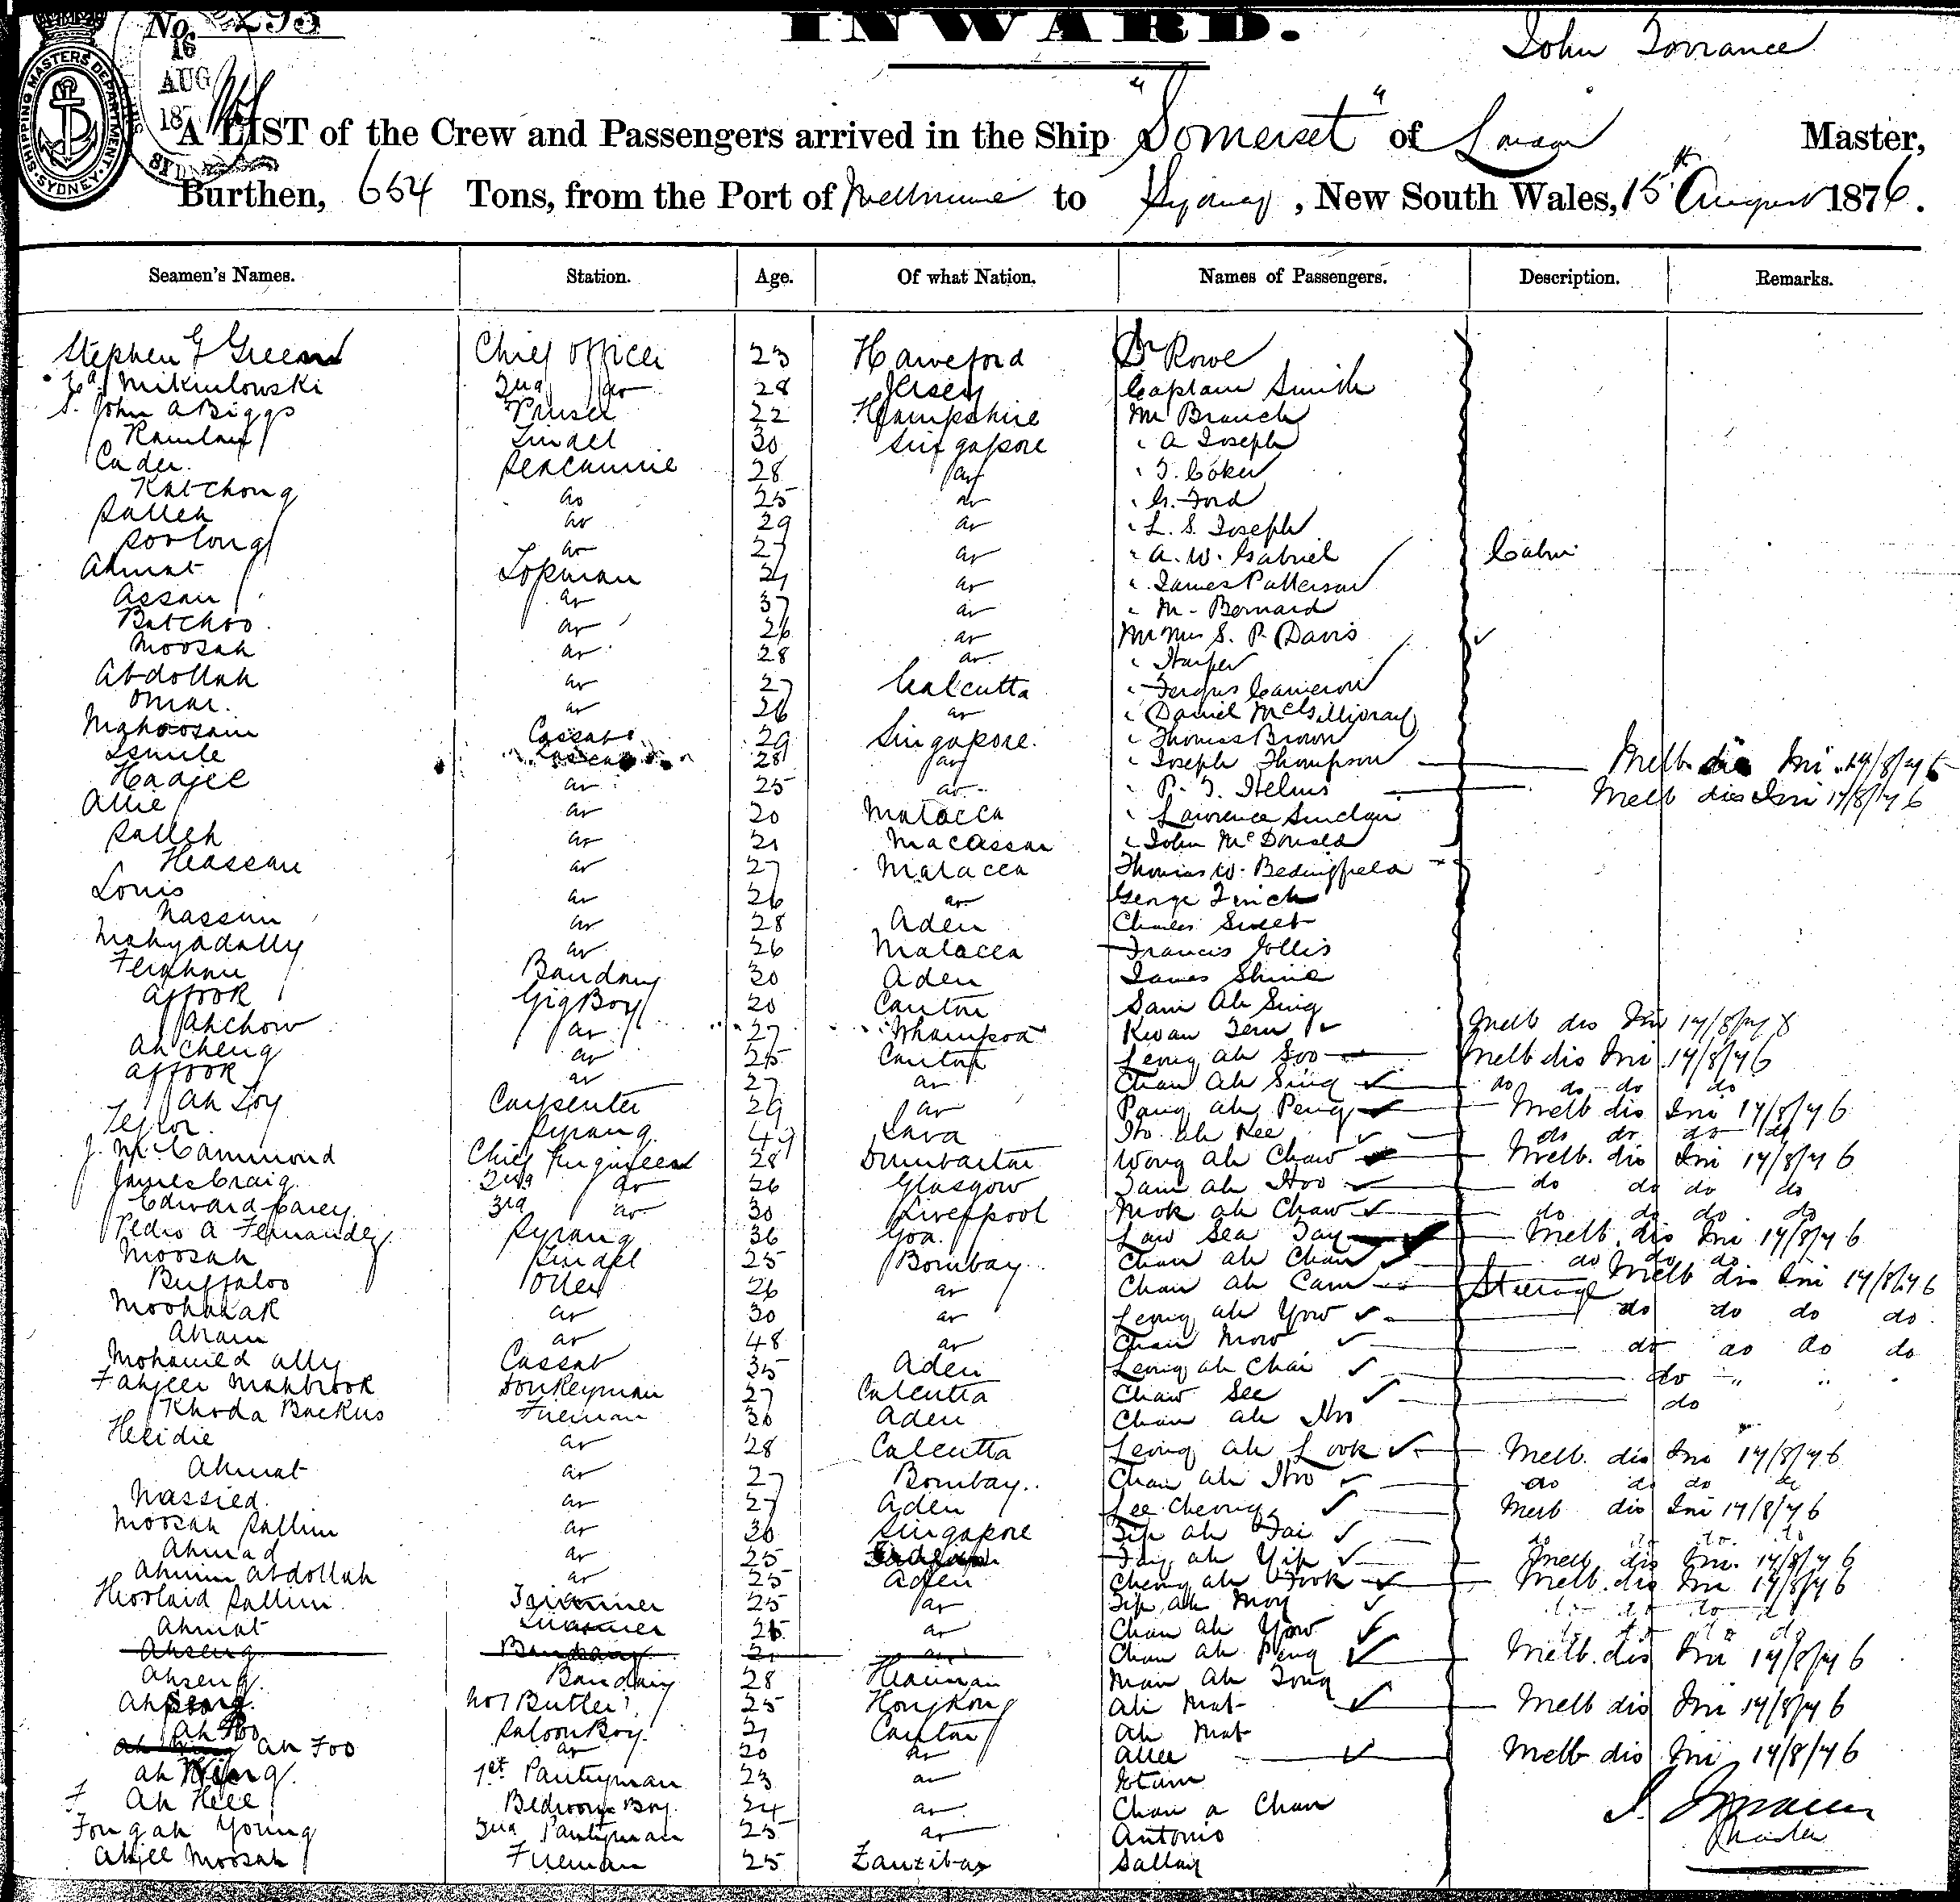 No. 293
INWARD.
John Torrance
SHIPPING MASTERS DEPARTMENT SYDNEY
16 AUG 187
A LIST of the Crew and Passengers arrived in the Ship "Somerset" of London Master,
Burthen, 654 Tons, from the Port of Melbourne to Sydney, New South Wales, 15th August 1876.
Seamen's Names. Station. Age. Of what Nation. Names of Passengers. Description. Remarks.
Stephen G Green Chief Officer 23 Haveford Dr Rowe
Mikulowski 2nd do 28 Jersey Captain Smith
S. John A Biggs Purser 22 Hampshire Mr Branch
Ramlan Tindel 30 Singapore " A Joseph
Cader. Seacunnie 28 do " T. Coker
Katchong do 25 do " G. Ford
Salleh do 29 do " L. S. Joseph
Soolong do 27 do " A. W. Gabriel Cabin
Ahmat Topman 21 do " James Patterson
Assan do 37 do " M. Bernard
Batchoo do 26 do Mr Mrs S. P. Davis
Moosah do 28 do " Harper
Abdollah do 27 Calcutta " Fergus Cameron
Omar. do 26 do " Daniel McGillivray
Mahoosain Cassab 29 Singapore. " Thomas Brown
Ismile Lascar 28 do " Joseph Thompson Melb dis Ini 14/8/76
Hadjee do 25 do " P. J. Helms Melb dis Ini 14/8/76
Allie do 20 Malacca " Lawrence Sinclair
Salleh do 21 Macassar " John McDonald
Hassan do 27 Malacca Thomas W. Bedingfield
Louis do 26 do George Finch
Nassim do 28 Aden Charles Sweet
Mahyadally do 26 Malacca Francis Jollis
Ferahau Bandary 30 Aden James Shine
Affook Gig Boy 20 Canton Sam Ah Sing
Ahchow do 27 Whampoa Kwan Tem Melb dis Ini 14/8/76
Ah Cheng do 25 Canton Leong Ah Soo Melb dis Ini 14/8/76
Affook do 27 do Chan Ah Sing do do do do
Ah Loy Carpenter 29 do Pang Ah Peng Melb dis Ini 14/8/76
Teflor Syrang 49 Java Ho Ah Kee do do do do
J. McCammond Chief Engineer 28 Dumbarton Wong Ah Chaw Melb. dis Ini 14/8/76
James Craig. 2nd do 26 Glasgow Tam Ah Hoo do do do do
Edward Carey 3rd do 30 Liverpool Mok Ah Chaw do do do do
Pedro A Fernandez Syrang 36 Goa. Law Sea Tay Melb. dis Ini 14/8/76
Moosah Tindel 25 Bombay Chan Ah Chan do do do
Buffaloo Oiler 26 do Chan Ah Cam Steerage Melb dis Ini 14/8/76
Moobarak do 30 do Leong Ah Yow do do do do
Aham do 48 do Chan Mow do do do do
Mohamed Ally Cassab 35 Aden Leong Ah Chai do " "
Fahjeer Mahbrook Donkeyman 27 Calcutta Chaw See do
Khoda Backus Fireman 30 Aden Chan Ah Ho
Heidie do 28 Calcutta Leong Ah Look Melb. dis Ini 14/8/76
Ahmat do 27 Bombay. Chan Ah Ho do do do do
Nassied. do 27 Aden Lee Cheong Melb dis Ini 14/8/76
Moosah Sallim do 30 Singapore Yip Ah Tai do do do do
Ahmad do 25 Faig Ah Yip Melb dis Ini. 14/8/76
Ahmin Abdollah do 25 Aden Cheong Ah Fook Melb. dis Ini 14/8/76
Hoolaid Sallim. Trimmer 25 do Yip Ah Moy do do do do
Ahmat Trimmer 25 do Chan Ah Yow do do do do
Ahseng Bandary 21 do Chan Ah Peng Melb. dis Ini 14/8/76
Ahseng. Bandary 28 Hainan Man Ah Tong
Ah Song. No 1 Butler 25 Hongkong Ah Mat Melb dis Ini 14/8/76
Ah Poo Saloon Boy. 21 Canton Ah Mat
Ah Foo do 20 do Allee Melb dis Ini 14/8/76
Ah King. 1st Pantryman 23 do Etam
Ah Hee Bedroom Boy. 24 do Chan a Chan J. Torrance
Fongah Young 2nd Pantryman 25 do Antonio Master
Ahjee Moosah Fireman 25 Zanzibar Sallay